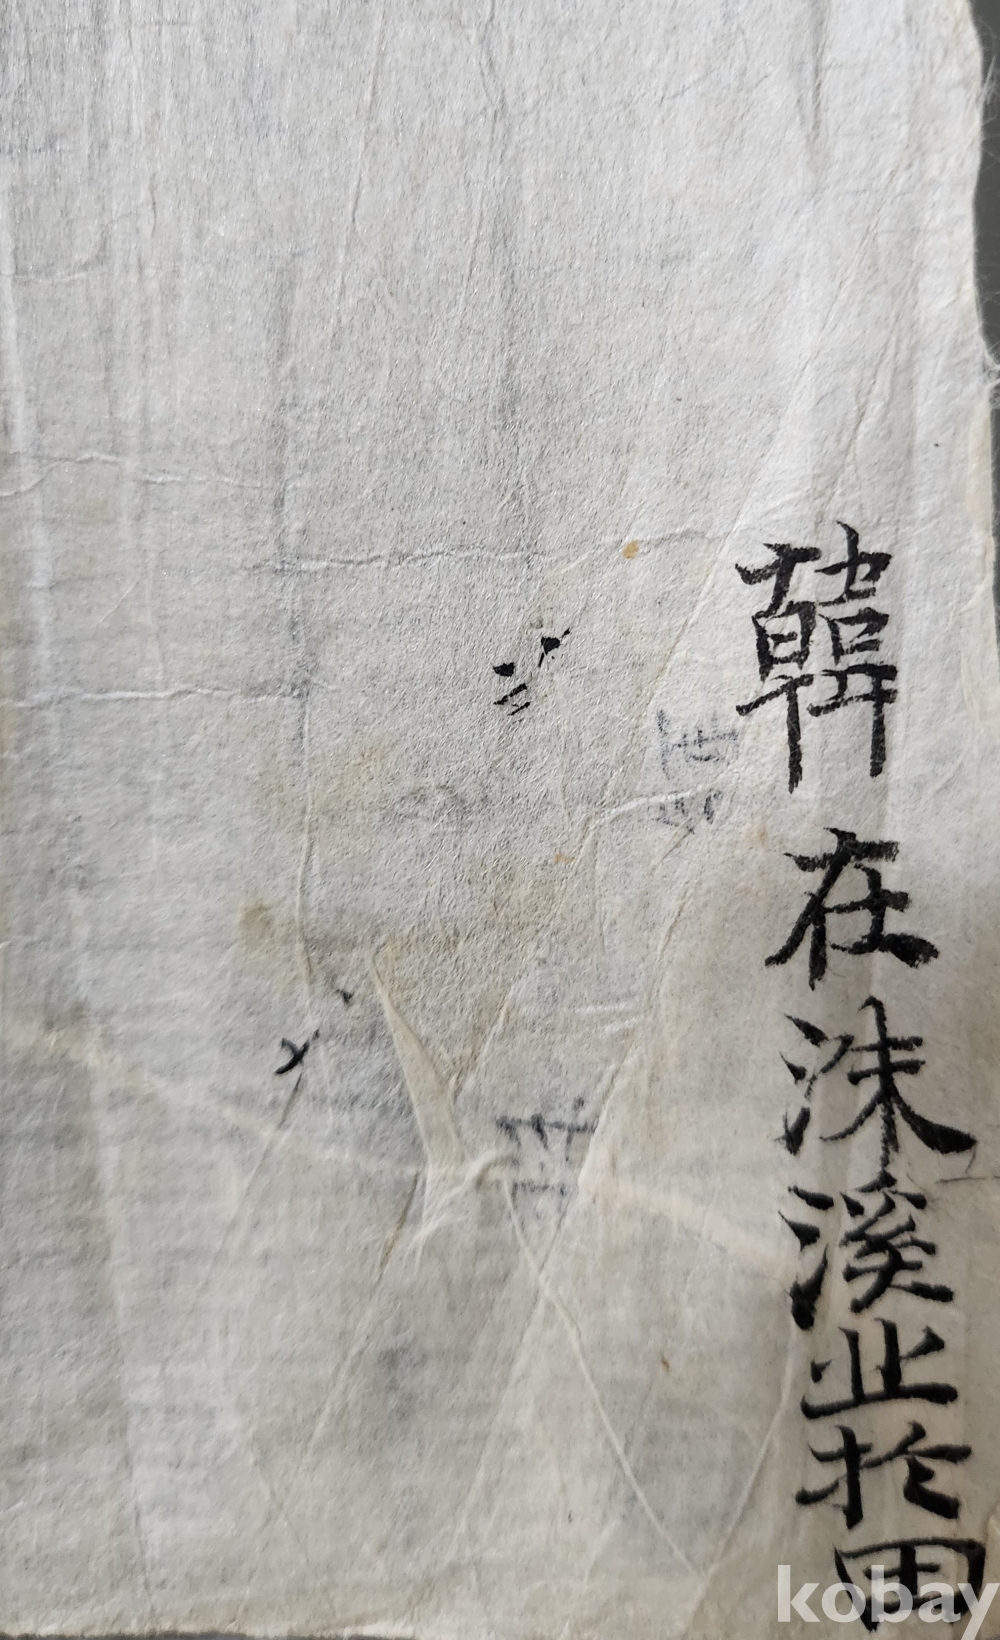 韓在洙溪止於田
kobay